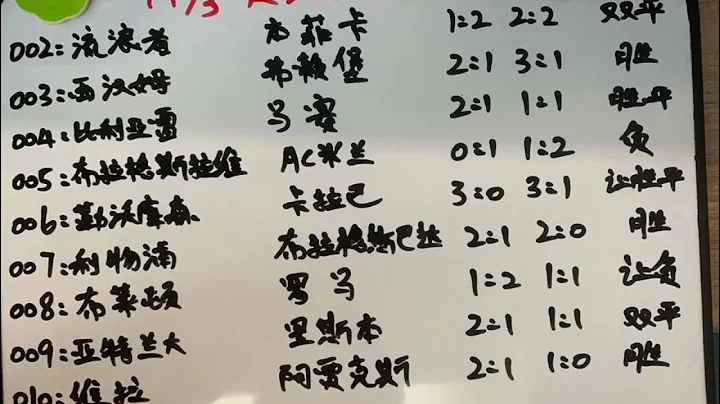 002:流浪者 本菲卡 1:2 2:2 双平
003:西汉姆 弗赖堡 2:1 3:1 胜
004:比利亚雷 马赛 2:1 1:1 胜平
005:布拉格斯拉维 AC米兰 0:1 1:2 负
006:勒沃库森 卡拉巴 3:0 3:1 让胜平
007:利物浦 布拉格斯巴达 2:1 2:0 胜
008:布莱顿 罗马 1:2 1:1 让负
009:亚特兰大 里斯本 2:1 1:1 双平
010:维拉 阿贾克斯 2:1 1:0 胜